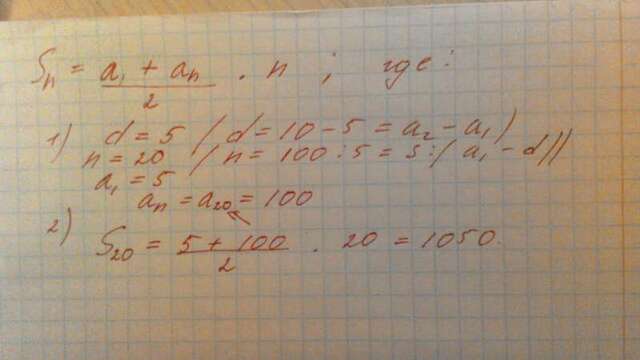 Sₙ = (a₁ + aₙ)/2 · n ; где:
1) d = 5 / d = 10 - 5 = a₂ - a₁)
n = 20 / n = 100 : 5 = 5 : ( a₁ - d ))
a₁ = 5
aₙ = a₂₀ = 100
2) S₂₀ = (5 + 100)/2 · 20 = 1050.